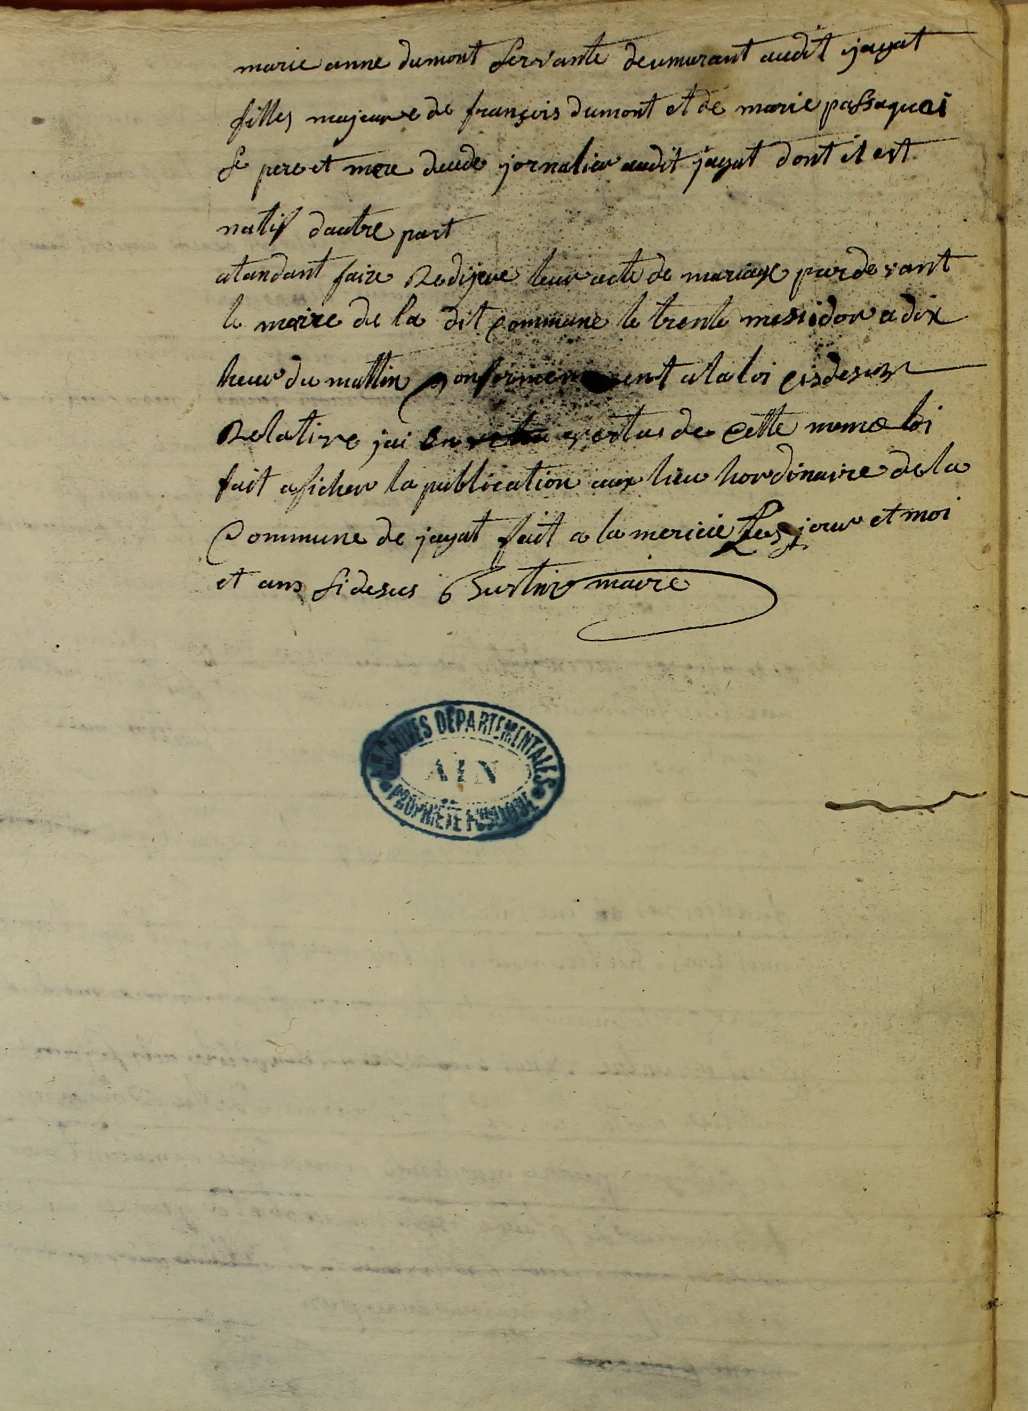 marie anne dumont servante deumurant audit jayat
filles majeure de françois dumont et de marie passaquai
se pere et mere decede jornalier audit jayat dont il est
natif dautre part
atandant faire Redijere leur acte de mariage par de vant
le maire de la dit Commune le trente messidor a dix
heur du mattin Conformement a la loi cisdesus
Relative jai en vertus de Cette meme loi
fait aficher la publication aux lieu hordinaire de la
Commune de jayat fait a la mericie Les jour et moi
et ans sidesus maire
ARCHIVES DÉPARTEMENTALES
AIN
PROPRIÉTÉ PUBLIQUE